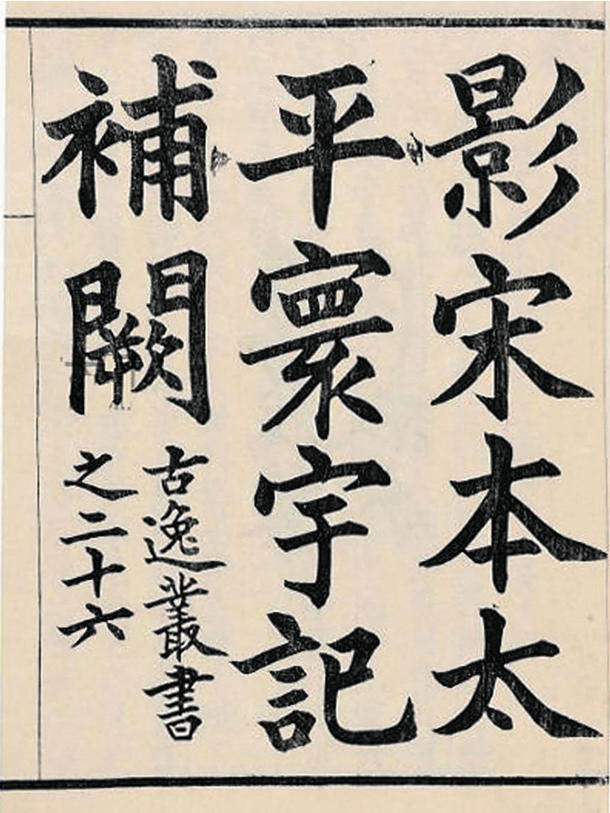 影宋本太
平寰宇記
補闕
古逸叢書
之二十六